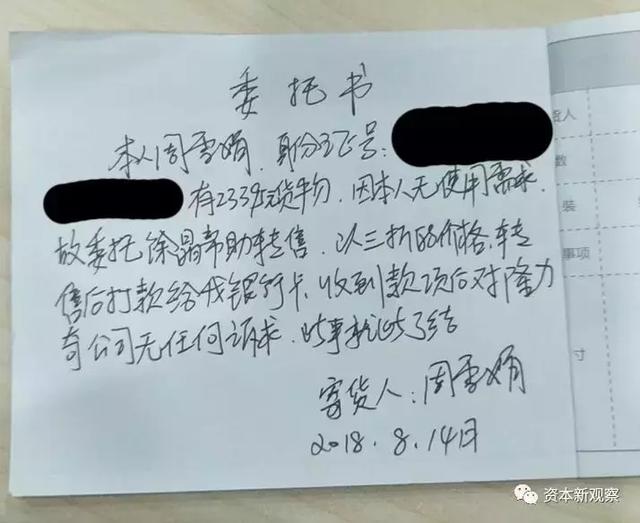 委托书
本人周雪娟,身份证号:
有23395元货物,因本人无使用需求,
故委托徐晶帮助转售,以三折的价格,转
售后打款给我银行卡,收到款项后对隆力
奇公司无任何诉求,此事就此了结
寄货人:周雪娟
2018.8.14日
货人
数
装
事项
寸
资本新观察